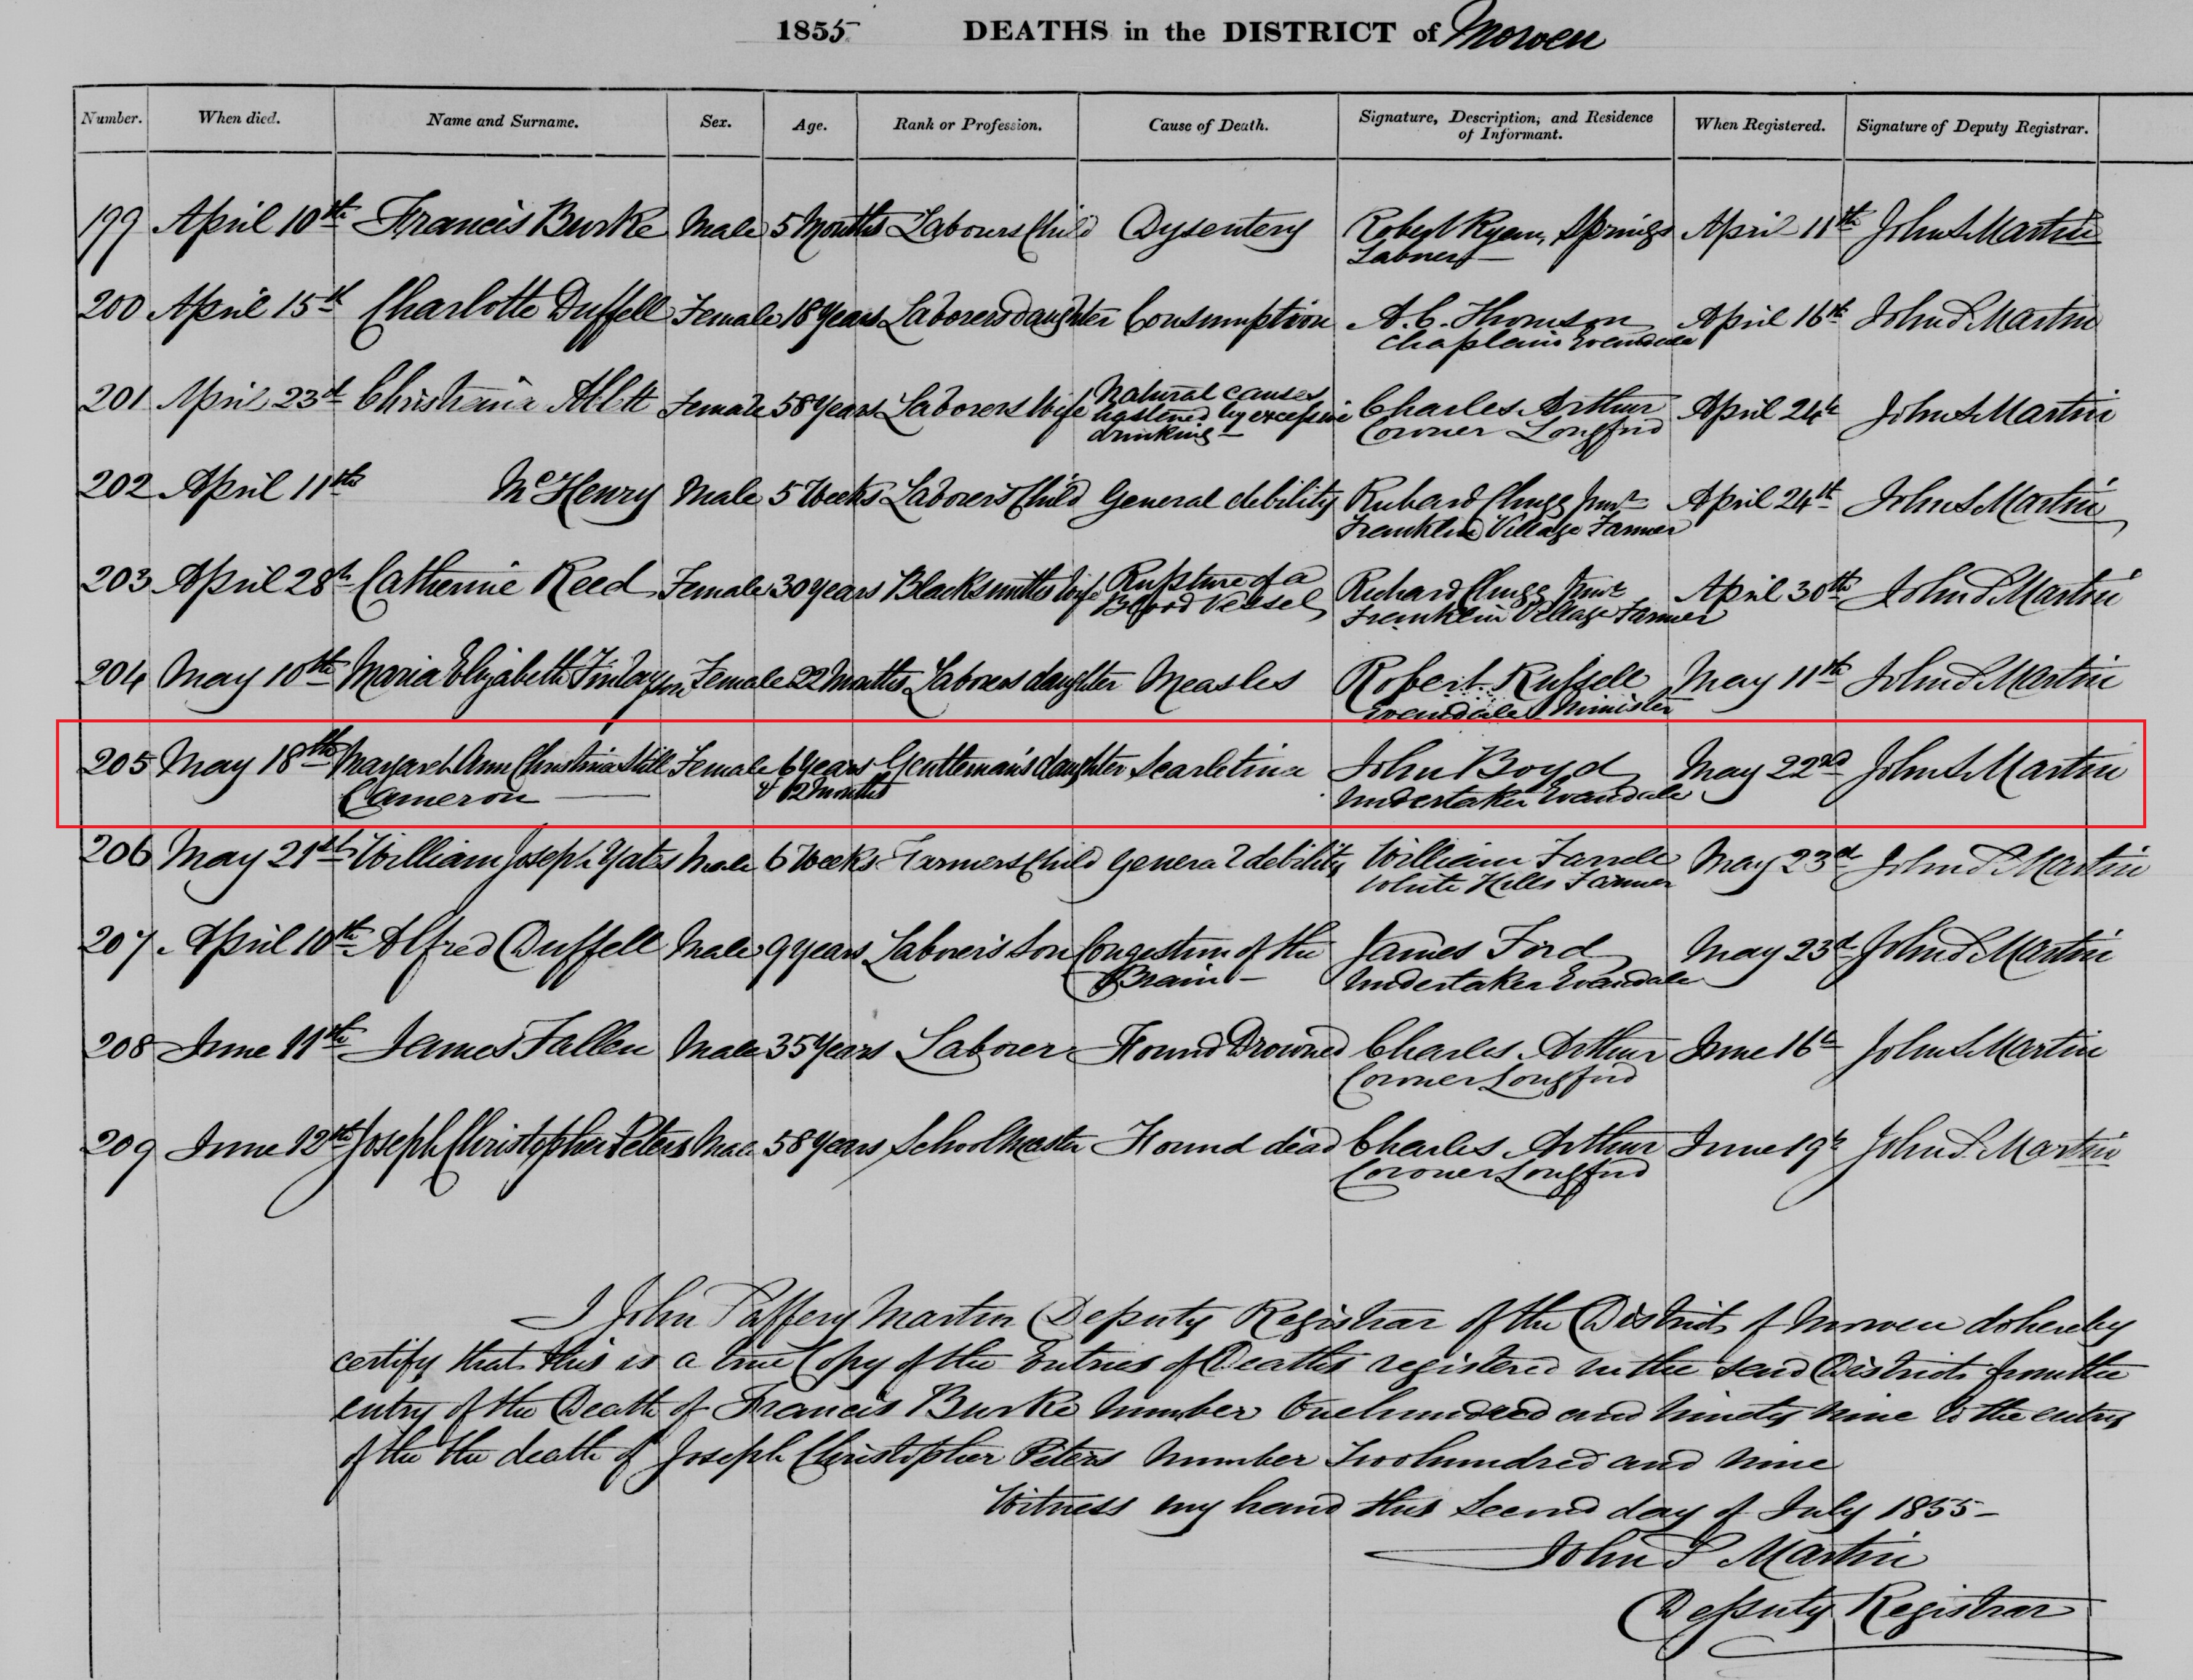 1855 DEATHS in the DISTRICT of Morven
Number. When died. Name and Surname. Sex. Age. Rank or Profession. Cause of Death. Signature, Description, and Residence of Informant. When Registered. Signature of Deputy Registrar.
199 April 10th Francis Burke Male 5 Months Labourers Child Dysentery Robert Ryan, Springs April 11th John S Martin
Labourer
200 April 15th Charlotte Duffell Female 18 Years Laborers daughter Consumption A. C. Thomson April 16th John S Martin
Chaplain Evandale
201 April 23d Christiania Female 58 Years Laborers Wife Natural causes hastened by excessive drinking Charles Arthur April 24th John S Martin
Coroner Longford
202 April 11th McHenry Male 5 Weeks Laborer's Child General debility Richard Chugg Junr April 24th John S Martin
Franklin Village Farmer
203 April 28th Catherine Reed Female 30 years Blacksmiths Wife Rupture of a Blood Vessel Richard Chugg Junr April 30th John S Martin
Franklin Village Farmer
204 May 10th Maria Elizabeth Finlayson Female 22 Months Laborers daughter Measles Robert Russell May 11th John S Martin
Evandale Minister
205 May 18th Margaret Ann Christina Still Female 6 years Gentleman's daughter Scarletina John Boyd May 22nd John S Martin
Cameron & 2 months Undertaker Evandale
206 May 21st William Joseph Yates Male 6 Weeks Farmers Child General debility William May 23d John S Martin
White Hills Farmer
207 April 10th Alfred Duffell Male 9 years Laborer's Son Congestion of the James Ford May 23d John S Martin
Brain Undertaker Evandale
208 June 11th James Fallen Male 35 Years Laborer Found Drowned Charles Arthur June 16th John S Martin
Coroner Longford
209 June 12th Joseph Christopher Peters Male 58 Years School Master Found dead Charles Arthur June 19th John S Martin
Coroner Longford
I John Martin Deputy Registrar of the District of Morven do hereby
certify that this is a true Copy of the Entries of Deaths registered in the said District from the
entry of the Death of Francis Burke Number One hundred and ninety nine to the entry
of the the death of Joseph Christopher Peters Number Two hundred and nine
Witness my hand this Second day of July 1855
John S Martin
Deputy Registrar